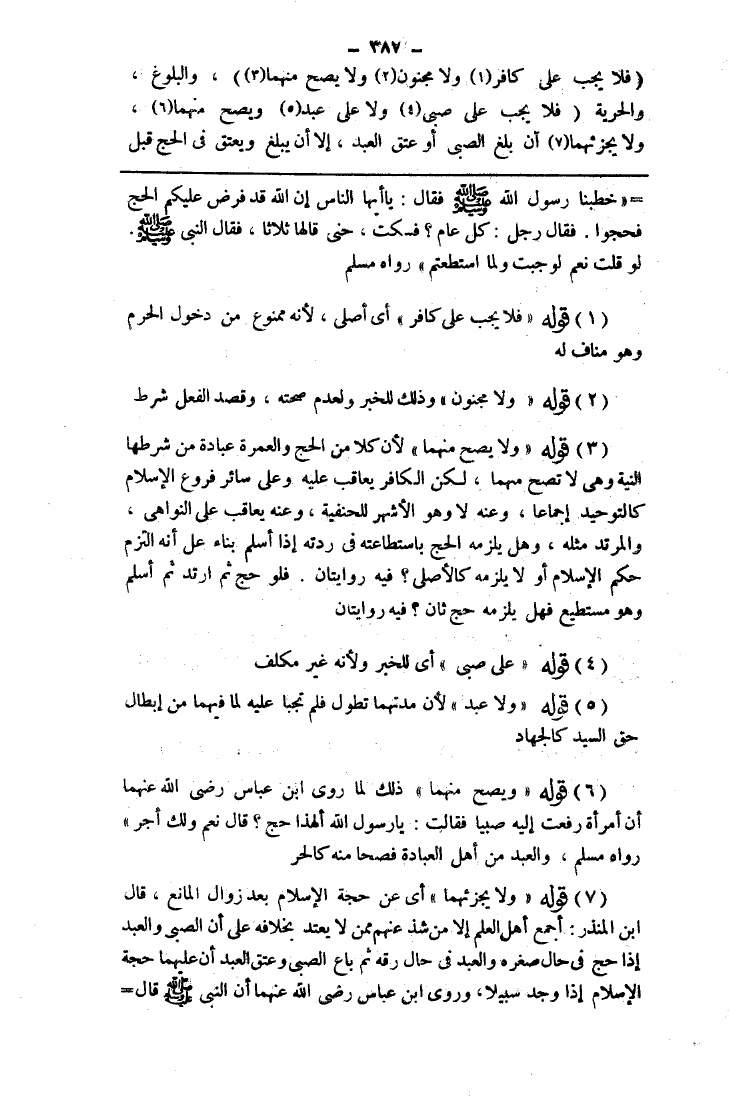 – ٣٨٧ –
( فلا يجب على كافر(١) ولا مجنون(٢) ولا يصح منهما(٣) ) ، والبلوغ ،
والحرية ( فلا يجب على صبى(٤) ولا على عبد(٥) ويصح منهما(٦) ،
ولا يجزئهما(٧) آن بلغ الصبى أو عتق العبد ، إلا أن يبلغ ويعتق فى الحج قبل
=« خطبنا رسول الله ﷺ فقال : ياأيها الناس إن الله قد فرض عليكم الحج
فحجوا . فقال رجل : كل عام ؟ فسكت ، حتى قالها ثلاثا ، فقال النبى ﷺ .
لو قلت نعم لوجبت ولما استطعتم » رواه مسلم
( ١ ) قوله « فلا يجب على كافر » أى أصلى ، لأنه ممنوع من دخول الحرم
وهو مناف له
( ٢ ) قوله « ولا مجنون » وذلك للخبر ولعدم صحته ، وقصد الفعل شرط
( ٣ ) قوله « ولا يصح منهما » لأن كلا من الحج والعمرة عبادة من شرطها
النية وهى لا تصح مهما ، لكن الكافر يعاقب عليه وعلى سائر فروع الإسلام
كالتوحيد إجماعا ، وعنه لا وهو الأشهر للحنفية ، وعنه يعاقب على النواهى ،
والمرتد مثله ، وهل يلزمه الحج باستطاعته فى ردته إذا أسلم بناء على أنه التزم
حكم الإسلام أو لا يلزمه كالأصلى ؟ فيه روايتان . فلو حج ثم ارتد ثم أسلم
وهو مستطيع فهل يلزمه حج ثان ؟ فيه روايتان
( ٤ ) قوله « على صبى » أى للخبر ولأنه غير مكلف
( ٥ ) قوله « ولا عبد » لأن مدتهما تطول فلم تجبا عليه لما فيهما من إبطال
حق السيد كالجهاد
( ٦ ) قوله « ويصح منهما » ذلك لما روى ابن عباس رضى الله عنهما
أن أمرأة رفعت إليه صبيا فقالت : يارسول الله ألهذا حج ؟ قال نعم ولك أجر »
رواه مسلم ، والعبد من أهل العبادة فصحا منه كالحر
( ٧ ) قوله « ولا يجزئهما » أى عن حجة الإسلام بعد زوال المانع ، قال
ابن المنذر : أجمع أهل العلم إلا من شذ عنهم ممن لا يعتد بخلافه على أن الصبى والعبد
إذا حج فى حال صغره والعبد فى حال رقه ثم باغ الصبى وعتق العبد أن عليهما حجة
الإسلام إذا وجد سبيلا ، وروى ابن عباس رضى الله عنهما أن النبى ﷺ قال=